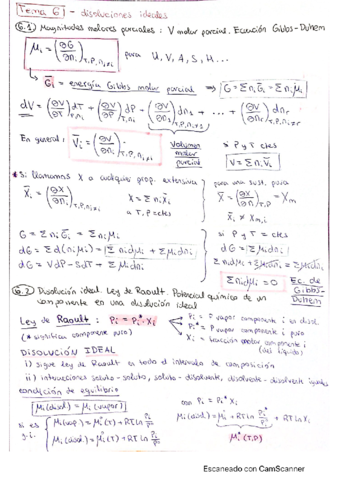 Tema 6 - disoluciones ideales
6.1 Magnitudes molares parciales: V molar parcial. Ecuación Gibbs-Duhem
μi = (∂G/∂ni)T,P,nj≠i para U, V, A, S, H...
→ Ḡi = energía Gibbs molar parcial ⇒ G = Σ ni Ḡi = Σ ni μi
dV = (∂V/∂T)P,ni dT + (∂V/∂P)T,ni dP + (∂V/∂n1)T,P,nj≠1 dn1 + ... + (∂V/∂nr)T,P,ni≠r dnr
En general: V̄i = (∂V/∂ni)T,P,nj≠i Volumen molar parcial
si P y T ctes
V = Σ ni V̄i
* Si llamamos X a cualquier prop. extensiva
X̄i = (∂X/∂ni)T,P,nj≠i X = Σ ni X̄i a T, P = ctes
para una sust. pura
X̄ = (∂X/∂n)T,P = Xm
X̄i ≠ Xm,i
G = Σ ni Ḡi = Σ ni μi
dG = Σ d(ni μi) = Σ ni dμi + Σ μi dni
dG = VdP - SdT + Σ μi dni
si P y T = ctes
dG = Σ μi dni
Σ ni dμi + Σ μi dni = Σ μi dni
Σ ni dμi = 0 Ec. de Gibbs-Duhem
6.2 Disolución ideal. Ley de Raoult. Potencial químico de un
componente en una disolución ideal
Ley de Raoult: Pi = Pi* Xi
(* significa componente puro)
Pi = P vapor componente i en disol.
Pi* = P vapor componente i puro
Xi = fracción molar componente i (del líquido)
DISOLUCIÓN IDEAL
i) sigue Ley de Raoult en todo el intervalo de composición
ii) interacciones soluto-soluto, soluto-disolvente, disolvente-disolvente iguales
condición de equilibrio
μi(disol) = μi(vapor)
con Pi = Pi* Xi
si es g.i.
μi(vap) = μi°(T) + RT ln Pi/P°
μi(disol) = μi°(T) + RT ln Pi/P°
μi(disol) = μi° + RT ln Pi*/P° + RT ln Xi
μi*(T,P)
Escaneado con CamScanner